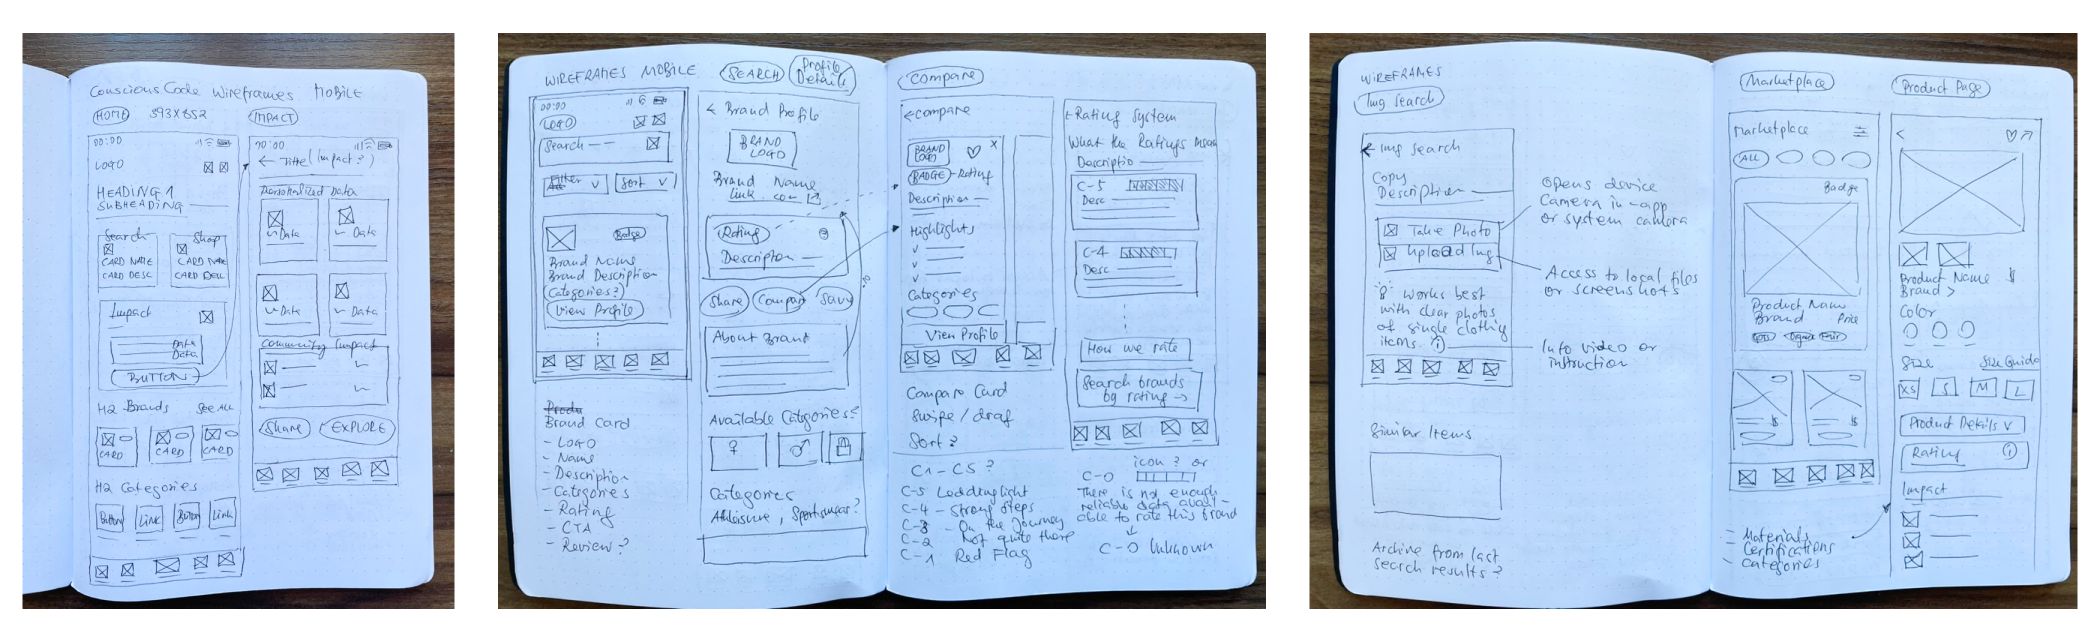 Conscious Code Wireframes MOBILE
HOME 393x852
IMPACT
00:00
LOGO
HEADING 1
SUBHEADING
Search
CARD NAME
CARD DESC
Shop
CARD NAME
CARD DESC
Impact
Data
Data
BUTTON
H2 Brands SEE ALL
CARD
CARD
CARD
H2 Categories
Button
Link
Button
Link
00:00
← Title (Impact?)
Personalized Data
Data
Data
Data
Data
Community Impact
Share
EXPLORE
WIREFRAMES MOBILE
SEARCH
Profile
Details
00:00
LOGO
Search
Filter
Sort
Badge
Brand Name
Brand Description
Categories?
View Profile
Brand Card
- Logo
- Name
- Description
- Categories
- Rating
- CTA
- Review?
← Brand Profile
BRAND
LOGO
Brand Name
link.com
Rating
Description
Share
Compare
Save
About Brand
Available Categories?
Categories
Athleisure, Sportswear?
Compare
← compare
BRAND
LOGO
x
BADGE - Rating
Description
Highlights
Categories
View Profile
Compare Card
Swipe / drag
Sort?
C1 - C5 ?
C-5 Leading light
C-4 - Strong Steps
C-3 - On the Journey
C-2 Not quite there
C-1 Red Flag
← Rating System
What the Ratings mean
Description
C-5
Desc
C-4
Desc
How we rate
Search brands
by rating →
icon? or
C-0
There is not enough
reliable data avail-
able to rate this brand
C-0 Unknown
WIREFRAMES
Img Search
← Img search
Copy
Description
Take Photo
Upload Img
works best
with clear photos
of single clothing
items. i
Opens device
Camera in-app
or system camera
Access to local files
or screenshots
Info video or
instruction
Similar Items
Archive from last
search results?
Marketplace
Marketplace
ALL
Badge
Product Name
Brand Price
Organic
Fair
$
$
- Materials
- Certifications
- Categories
Product Page
<
Product Name $
Brand >
Color
Size Size Guide
XS
S
M
L
Product Details v
Rating i
Impact